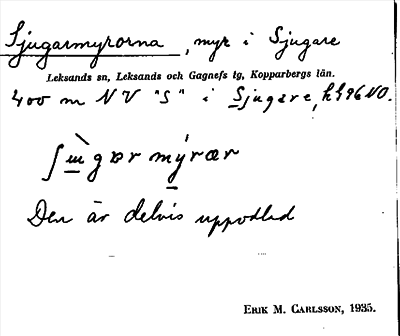 Sjugarmyrorna, myr i Sjugare
Leksands sn, Leksands och Gagnefs tg, Kopparbergs län.
400 m NV "S" i Sjugare, h496 NO.
ʃɯ̀gɒr mýrær
Den är delvis uppodlad
ERIK M. CARLSSON, 1935.